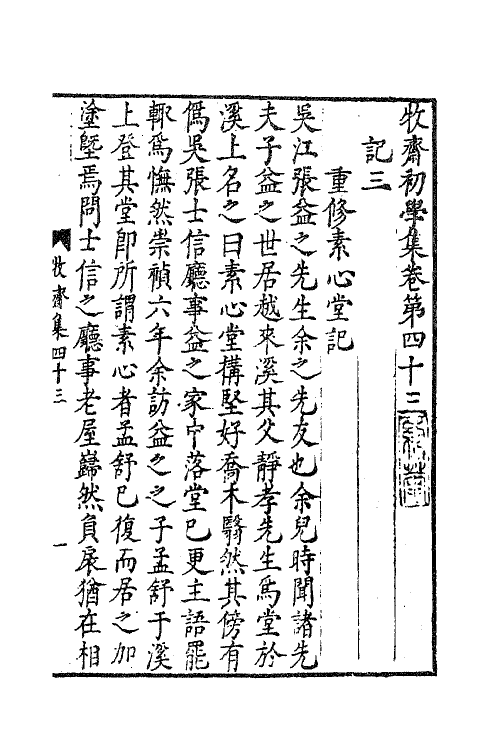 牧齋初學集卷第四十三
記三
重修素心堂記
吳江張益之先生余之先友也余兒時聞諸先
夫子益之世居越來溪其父靜孝先生爲堂於
溪上名之曰素心堂構堅好喬木翳然其傍有
僞吳張士信廳事益之家中落堂已更主語罷
輒爲憮然崇禎六年余訪益之之子孟舒于溪
上登其堂卽所謂素心者孟舒已復而居之加
塗墍焉問士信之廳事老屋巋然負扆猶在相
牧齋集四十三
一